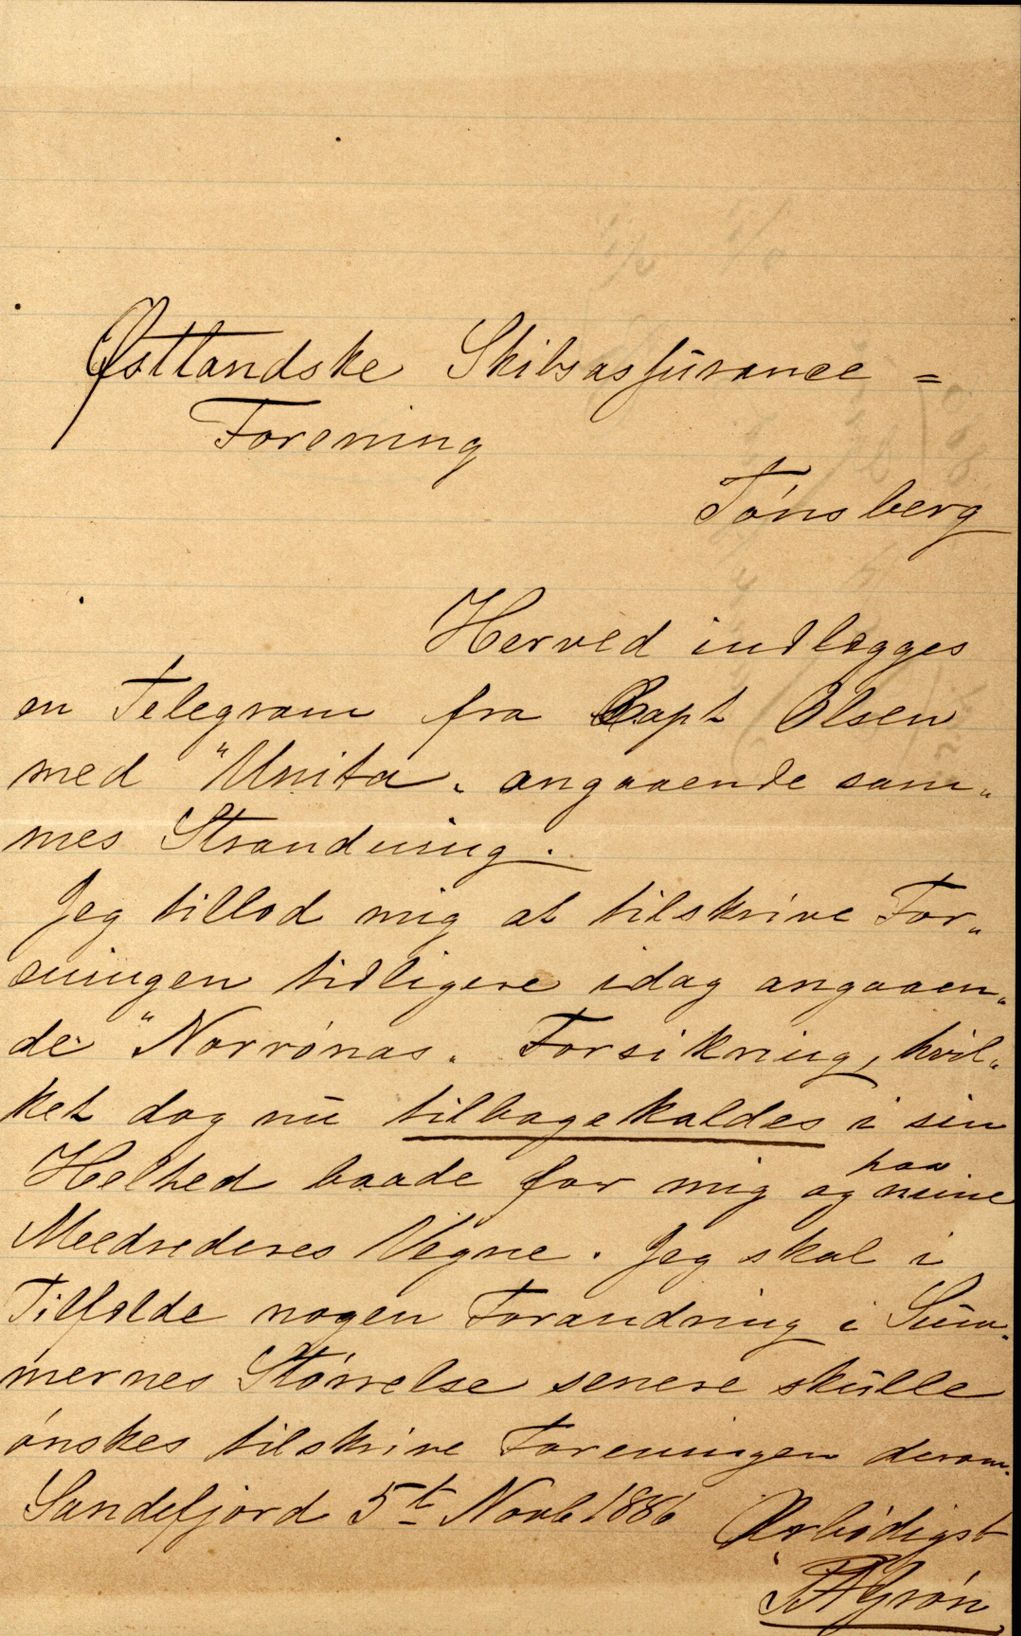 Østlandske Skibsassurance =
Forening
Tönsberg
Herved indlægges
en Telegram fra Capt Olsen
med "Unita" angaaende sam„
mes Stranduing.
Jeg tillod mig at tilskrive For„
eningen tidligere idag angaaen„
de "Norrónas" Forsikring, hvil„
ket dog nu tilbagekaldes i sin
Helhed baade for mig og paa mine
Medrederes Vegne. Jeg skal i
Tilfælde nogen Forandring i Sum„
mernes Störrelse senere skulle
önskes tilskrive Foreningen derom.
Sandefjord 5t Novb 1886 Ærbödigst
Grøn